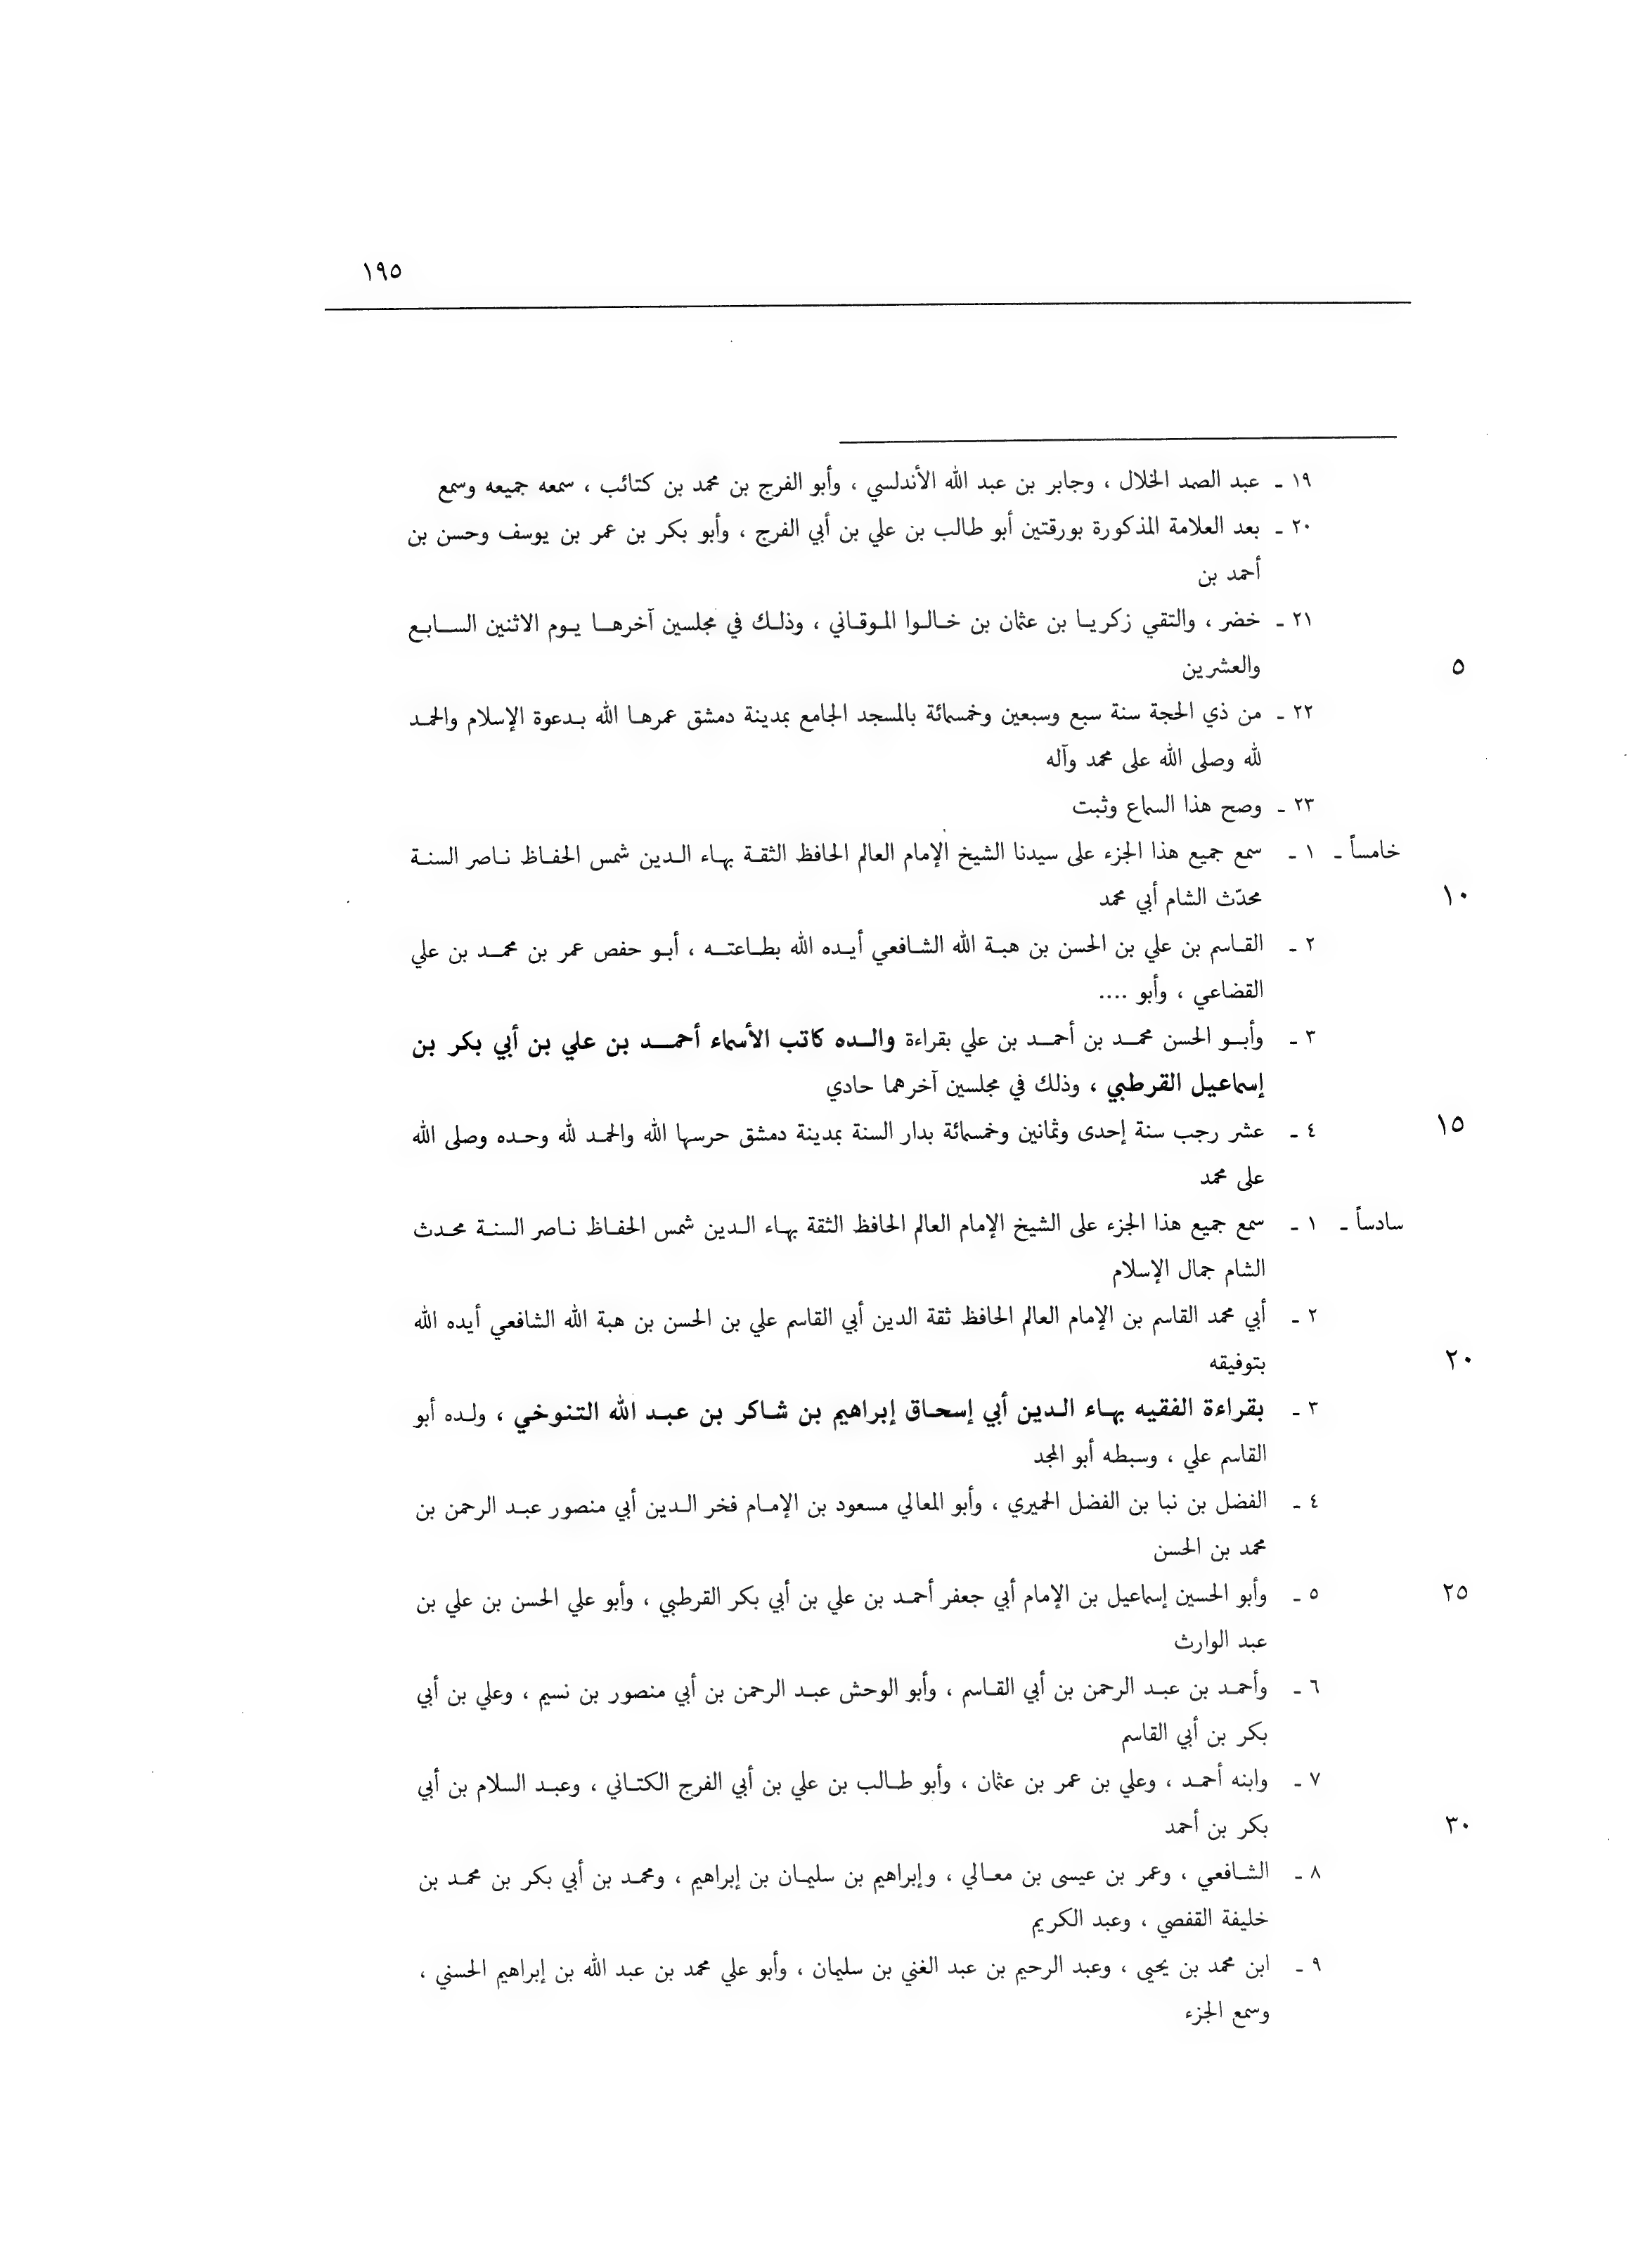 ١٩٥
١٩ ـ عبد الصمد الخلال ، وجابر بن عبد الله الأندلسي ، وأبو الفرج بن محمد بن كتائب ، سمعه جميعه وسمع
٢٠ ـ بعد العلامة المذكورة بورقتين أبو طالب بن علي بن أبي الفرج ، وأبو بكر بن عمر بن يوسف وحسن بن
أحمد بن
٢١ ـ خضر ، والتقي زكريـا بن عثمان بن خـالـوا الموقـاني ، وذلـك في مجلسين آخرهـا يـوم الاثنين السـابـع
والعشرين ٥
٢٢ ـ من ذي الحجة سنة سبع وسبعين وخمسمائة بالمسجد الجامع بمدينة دمشق عمرهـا الله بـدعوة الإسلام والحمـد
لله وصلى الله على محمد وآله
٢٣ ـ وصح هذا السماع وثبت
خامساً ـ ١ ـ سمع جميع هذا الجزء على سيدنا الشيخ الإمام العالم الحافظ الثقـة بهـاء الـدين شمس الحفـاظ نـاصر السنـة
محدّث الشام أبي محمد ١٠
٢ ـ القـاسم بن علي بن الحسن بن هبـة الله الشـافعي أيـده الله بطـاعتـه ، أبـو حفص عمر بن محمـد بن علي
القضاعي ، وأبو ....
٣ ـ وأبـو الحسن محمـد بن أحمـد بن علي بقراءة والـده كاتب الأسماء أحمـد بن علي بن أبي بكر بن
إسماعيل القرطبي ، وذلك في مجلسين آخرهما حادي
٤ ـ عشر رجب سنة إحدى وثمانين وخمسمائة بدار السنة بمدينة دمشق حرسها الله والحمـد لله وحـده وصلى الله ١٥
على محمد
سادساً ـ ١ ـ سمع جميع هذا الجزء على الشيخ الإمام العالم الحافظ الثقة بهـاء الـدين شمس الحفـاظ نـاصر السنـة محـدث
الشام جمال الإسلام
٢ ـ أبي محمد القاسم بن الإمام العالم الحافظ ثقة الدين أبي القاسم علي بن الحسن بن هبة الله الشافعي أيده الله
بتوفيقه ٢٠
٣ ـ بقراءة الفقيه بهـاء الـدين أبي إسحـاق إبراهيم بن شـاكر بن عبـد الله التنوخي ، ولـده أبو
القاسم علي ، وسبطه أبو المجد
٤ ـ الفضل بن نبا بن الفضل الحميري ، وأبو المعالي مسعود بن الإمـام فخر الـدين أبي منصور عبـد الرحمن بن
محمد بن الحسن
٥ ـ وأبو الحسين إسماعيل بن الإمام أبي جعفر أحمـد بن علي بن أبي بكر القرطبي ، وأبو علي الحسن بن علي بن ٢٥
عبد الوارث
٦ ـ وأحمـد بن عبـد الرحمن بن أبي القـاسم ، وأبو الوحش عبـد الرحمن بن أبي منصور بن نسيم ، وعلي بن أبي
بكر بن أبي القاسم
٧ ـ وابنه أحمـد ، وعلي بن عمر بن عثمان ، وأبو طـالب بن علي بن أبي الفرج الكتـاني ، وعبـد السلام بن أبي
بكر بن أحمد ٣٠
٨ ـ الشـافعي ، وعمر بن عيسى بن معـالي ، وإبراهيم بن سليمـان بن إبراهيم ، ومحمـد بن أبي بكر بن محمـد بن
خليفة القفصي ، وعبد الكريم
٩ ـ ابن محمد بن يحيى ، وعبد الرحيم بن عبد الغني بن سليمان ، وأبو علي محمد بن عبد الله بن إبراهيم الحسني ،
وسمع الجزء